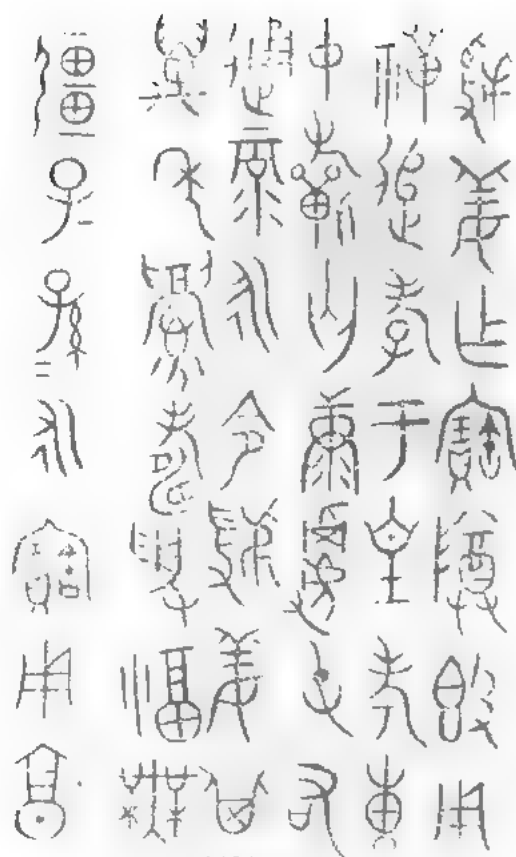 虢姜乍寶尊𣪘用
禪追孝于皇考叀
中𣄨匄康𢀜屯右
通彔永令虢姜其
萬年眉壽受福無
彊子孫=永寶用享